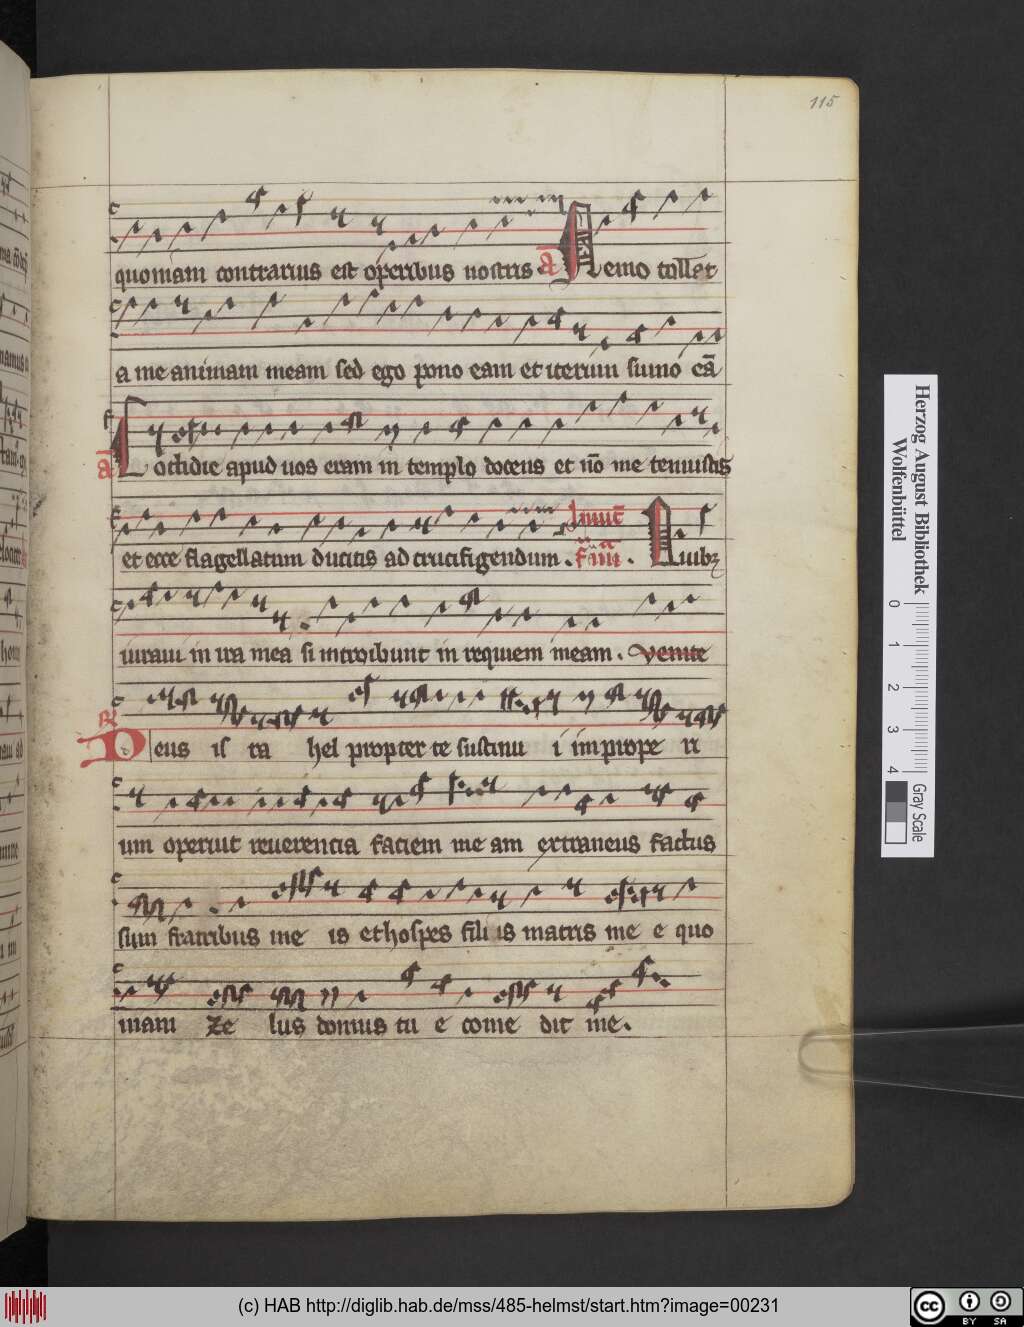 115
quoniam contrarius est operibus nostris. a Nemo tollet
a me animam meam sed ego pono eam et iterum sumo eā
a Cottidie apud uos eram in templo docens et nō me tenuistis
Inuit̄
et ecce flagellatum ducitis ad crucifigendum. fͥrͣ. Quibꝫ
iuraui in ira mea si introibunt in requiem meam. Venite
R Deus is ra hel propter te sustinu i imprope ri
um operuit reuerencia faciem me am extraneus factus
sum fratribus me is et hospes filiis matris me e quo
niam ze lus domus tu e come dit me.
Herzog August Bibliothek
Wolfenbüttel
0 1 2 3 4
Gray Scale
(c) HAB http://diglib.hab.de/mss/485-helmst/start.htm?image=00231
cc BY SA